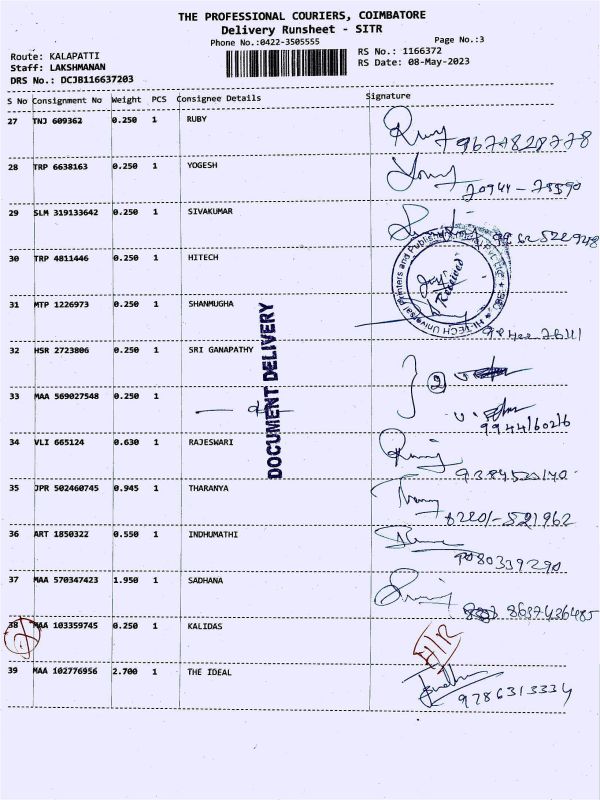 THE PROFESSIONAL COURIERS, COIMBATORE
Delivery Runsheet - SITR
Phone No.:0422-3505555
Page No.:3
Route: KALAPATTI
RS No.: 1166372
Staff: LAKSHMANAN
RS Date: 08-May-2023
DRS No.: DCJB116637203
S No Consignment No Weight PCS Consignee Details Signature
27 TNJ 609362 0.250 1 RUBY
9677828778
28 TRP 6638163 0.250 1 YOGESH
29 SLM 319133642 0.250 1 SIVAKUMAR
30 TRP 4811446 0.250 1 HITECH
HI-TECH Universal Printers and Publishers
Received
31 MTP 1226973 0.250 1 SHANMUGHA
DOCUMENT DELIVERY
32 HSR 2723806 0.250 1 SRI GANAPATHY
2
33 MAA 569027548 0.250 1
9944160216
34 VLI 665124 0.630 1 RAJESWARI
35 JPR 502460745 0.945 1 THARANYA
6220/-521962
36 ART 1850322 0.550 1 INDHUMATHI
9080339290
37 MAA 570347423 1.950 1 SADHANA
8637436485
38 MAA 103359745 0.250 1 KALIDAS
39 MAA 102776956 2.700 1 THE IDEAL
9786313334